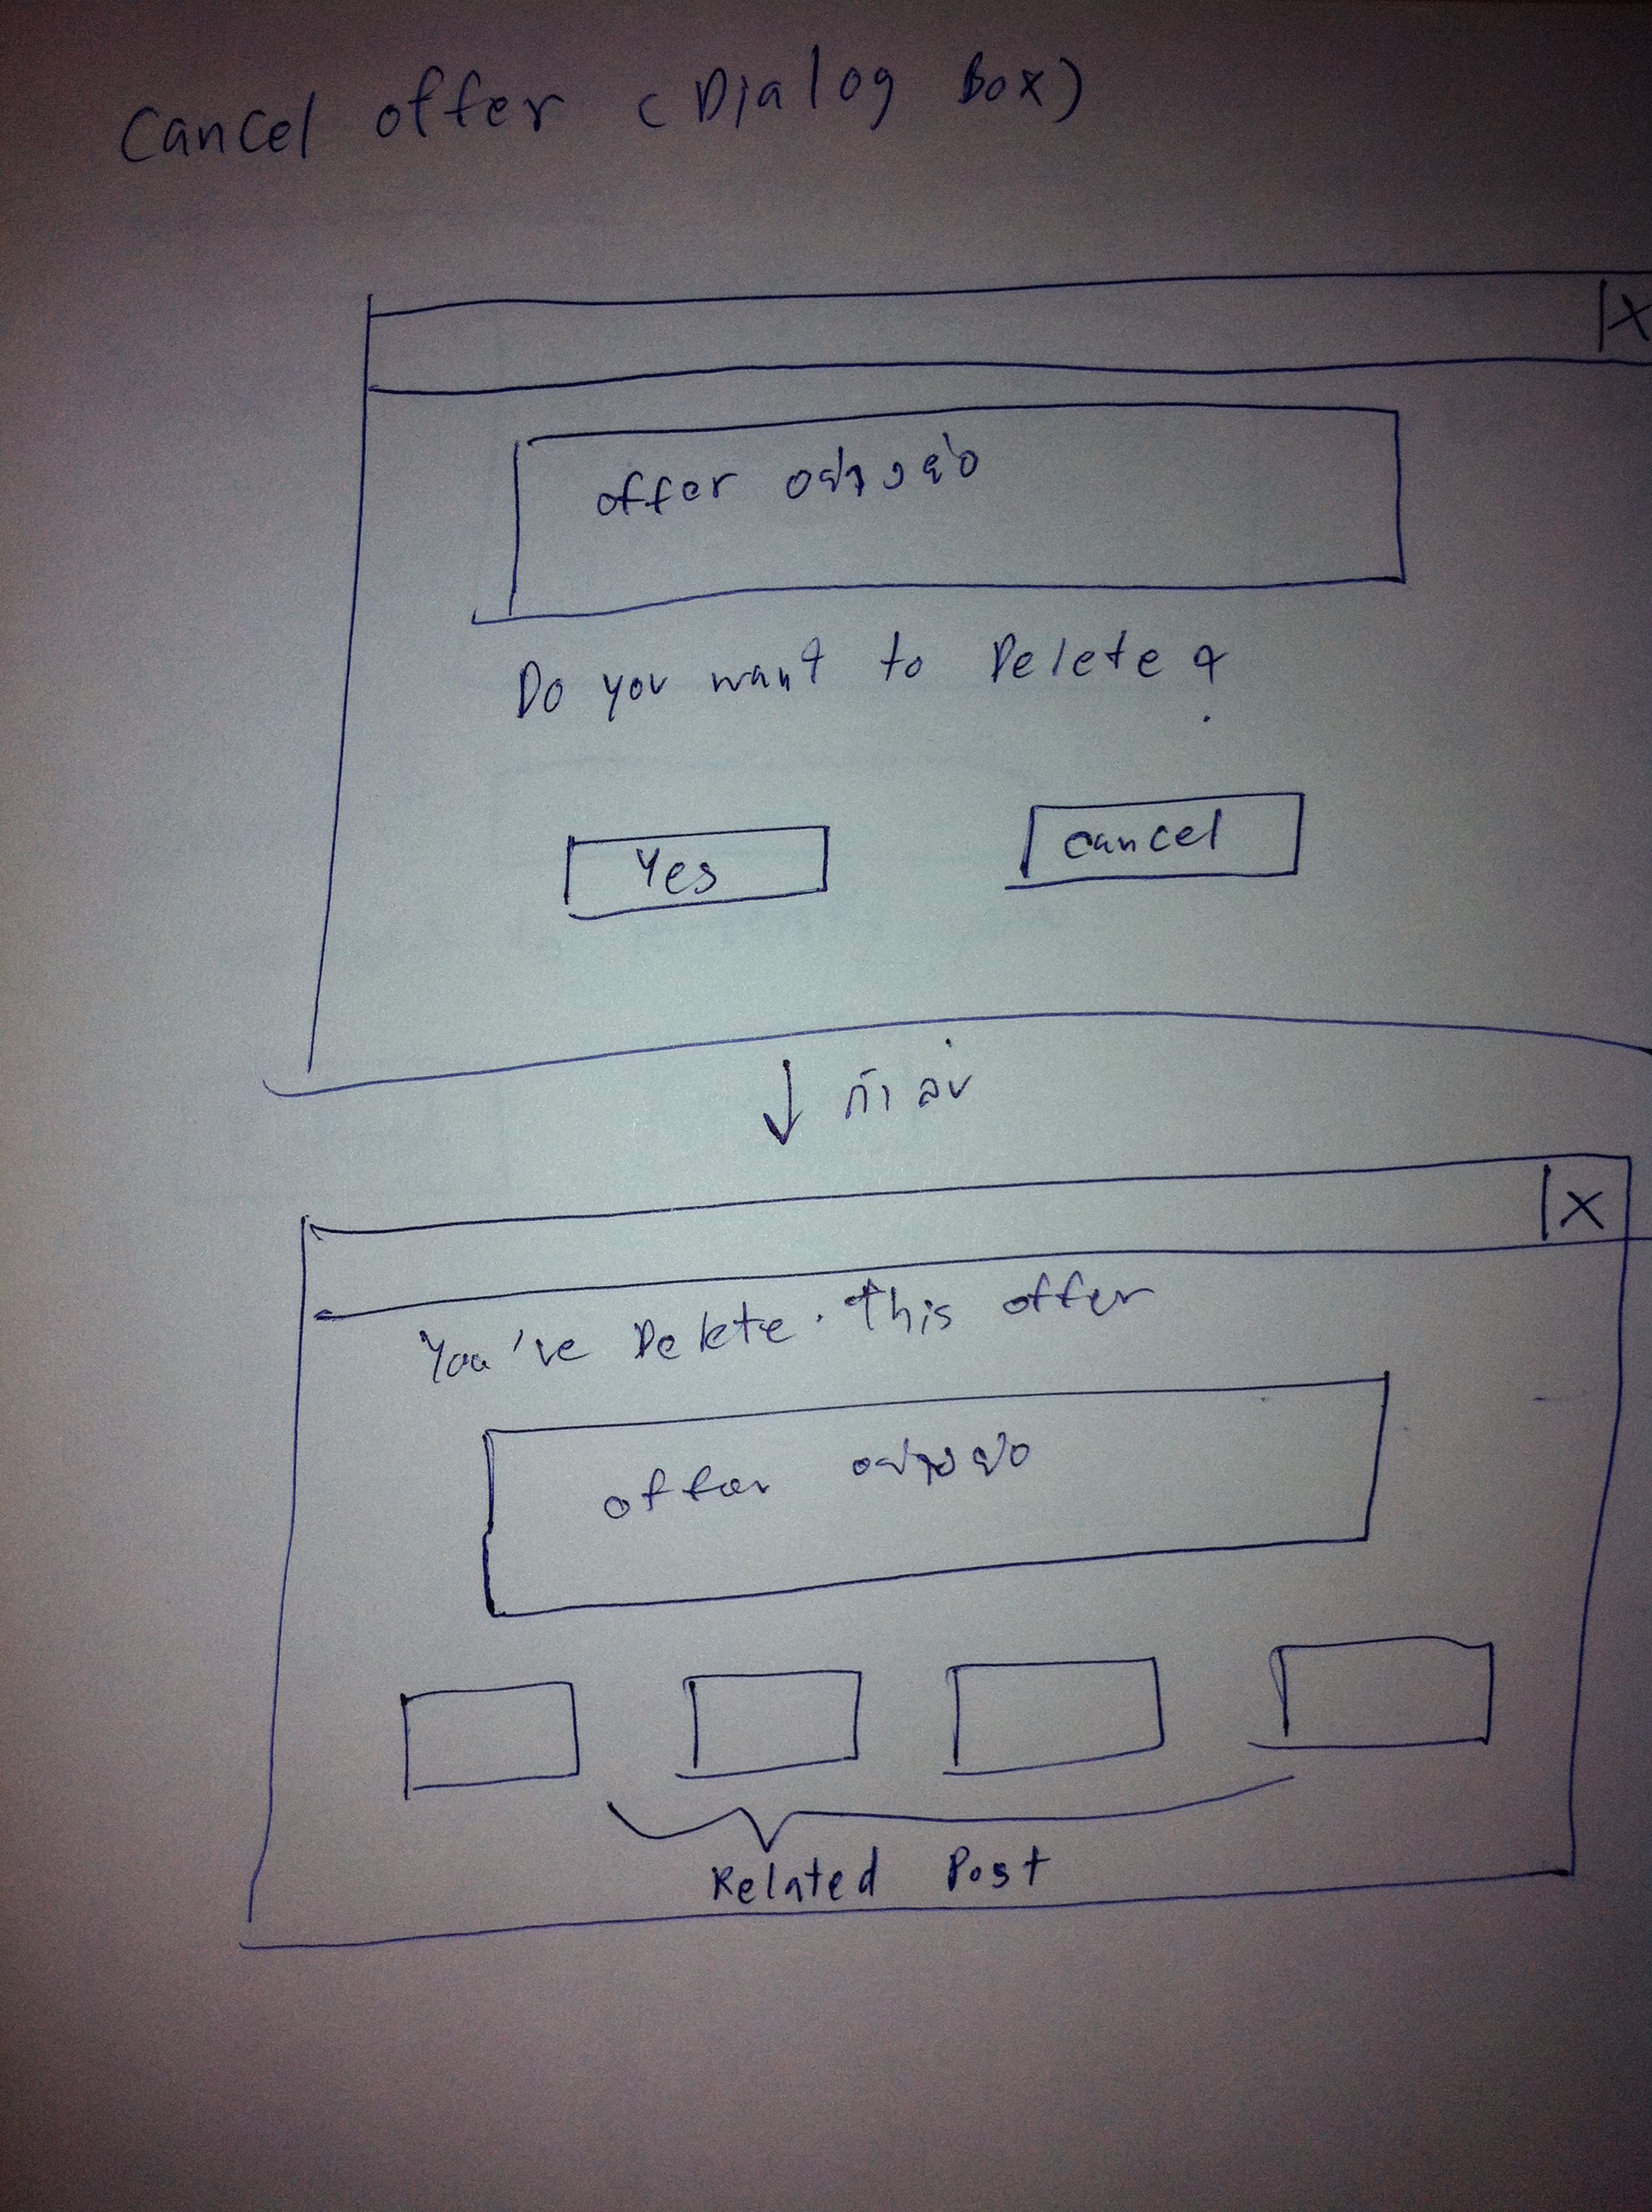 Cancel offer (Dialog Box)
X
offer อย่างย่อ
Do you want to Delete ?
Yes
cancel
ถ้า ลบ
X
You've Delete. This offer
offer อย่างย่อ
Related Post